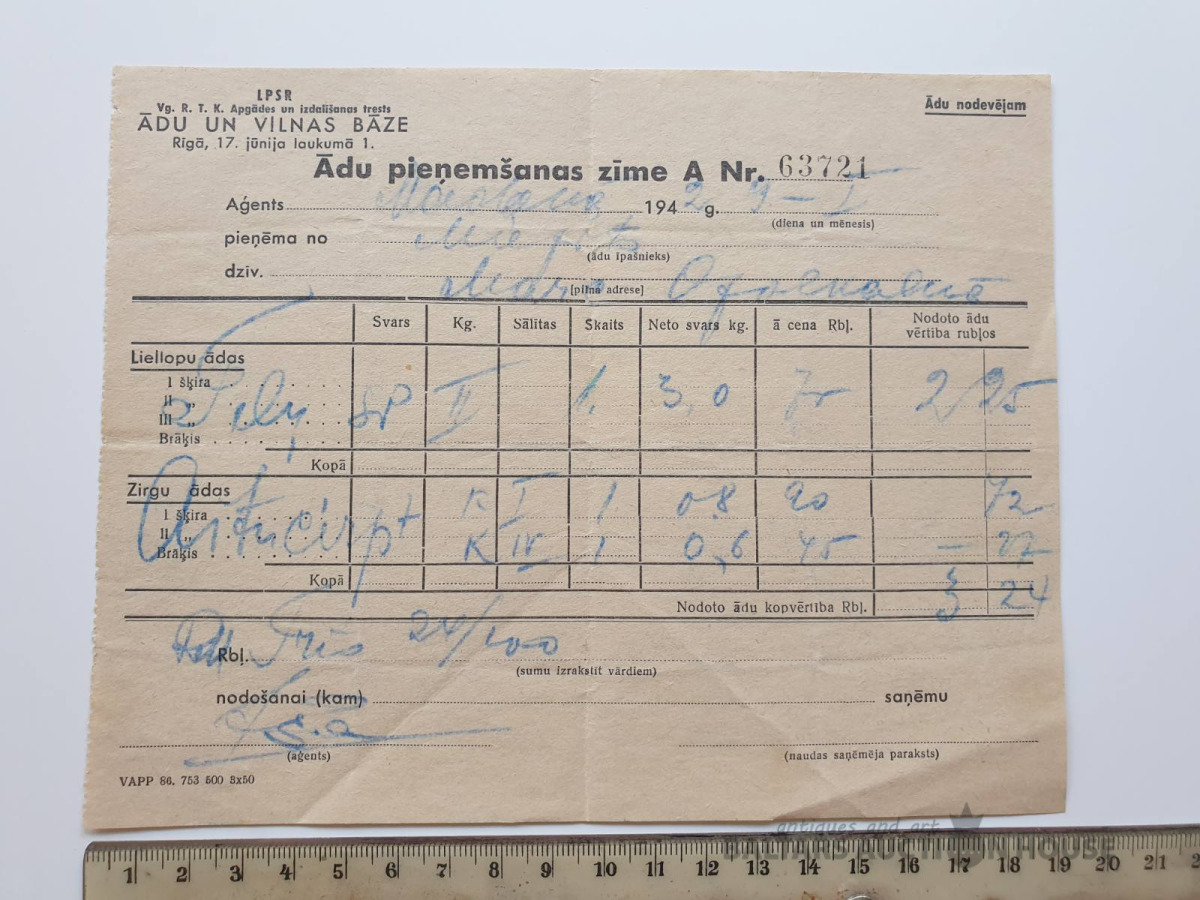 LPSR
Vg. R. T. K. Apgādes un izdalīšanas trests
ĀDU UN VILNAS BĀZE
Rīgā, 17. jūnija laukumā 1.
Ādu nodevējam
Ādu pieņemšanas zīme A Nr. 63721
Aģents 1942 g. 9 – I
(diena un mēnesis)
pieņēma no
(ādu īpašnieks)
dzīv.
[pilna adrese]
Svars Kg. Sālītas Skaits Neto svars kg. ā cena Rbļ. Nodoto ādu vērtība rubļos
Liellopu ādas
I šķira
II „ Teļu SP II 1. 3,0 75 2 25
III „
Brāķis
Kopā
Zirgu ādas
I šķira K I 1 0,8 90 72
II „
Brāķis K IV 1 0,6 45 – 27
Kopā
Nodoto ādu kopvērtība Rbļ. 3 24
Rbļ. Trīs 24/100
(sumu izrakstīt vārdiem)
nodošanai (kam) saņēmu
(aģents) (naudas saņēmēja paraksts)
VAPP 86. 753 500 3x50
antiques and art
AUCTION HOUSE
1 2 3 4 5 6 7 8 9 10 11 12 13 14 15 16 17 18 19 20 21 2